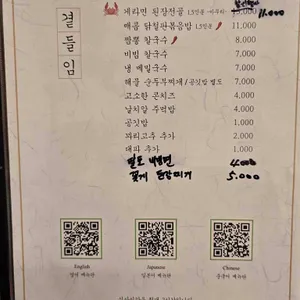 곁들임
게라면 된장전골 1.5인분 11.000
매콤 닭발편육볶음밥 1.5인분 11,000
짬뽕 칼국수 8,000
비빔 칼국수 7,000
냉 메밀국수 7,000
해물 순두부찌개 / 공깃밥 별도 7,000
고소한 콘치즈 4,000
날치알 주먹밥 4,000
공깃밥 1,000
꽈리고추 추가 2,000
대파 추가 1,000
4.000
꽃게 5.000
English
영어 메뉴판
Japanese
일본어 메뉴판
Chinese
중국어 메뉴판